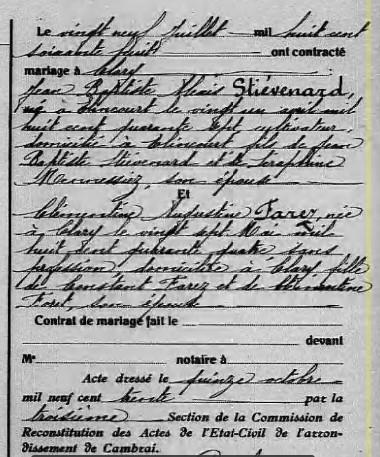 Le vingt neuf Juillet mil huit cent
soixante huit ont contracté
mariage à Clary :
Jean Baptiste Stiévenard,
né à Elincourt le vingt un avril mil
huit cent quarante sept cultivateur,
domicilié à Elincourt fils de Jean
Baptiste Stiévenard et de Séraphine
son épouse
Et
Clémentine Augustine Farez, née
à Clary le vingt sept Mai mil
huit cent quarante quatre sans
profession domiciliée à Clary fille
de Constant Farez et de Clémentine
Foret, son épouse
Contrat de mariage fait le
devant
Me notaire à
Acte dressé le quinze octobre
mil neuf cent trente par la
troisième Section de la Commission de
Reconstitution des Actes de l'Etat-Civil de l'arron-
dissement de Cambrai.